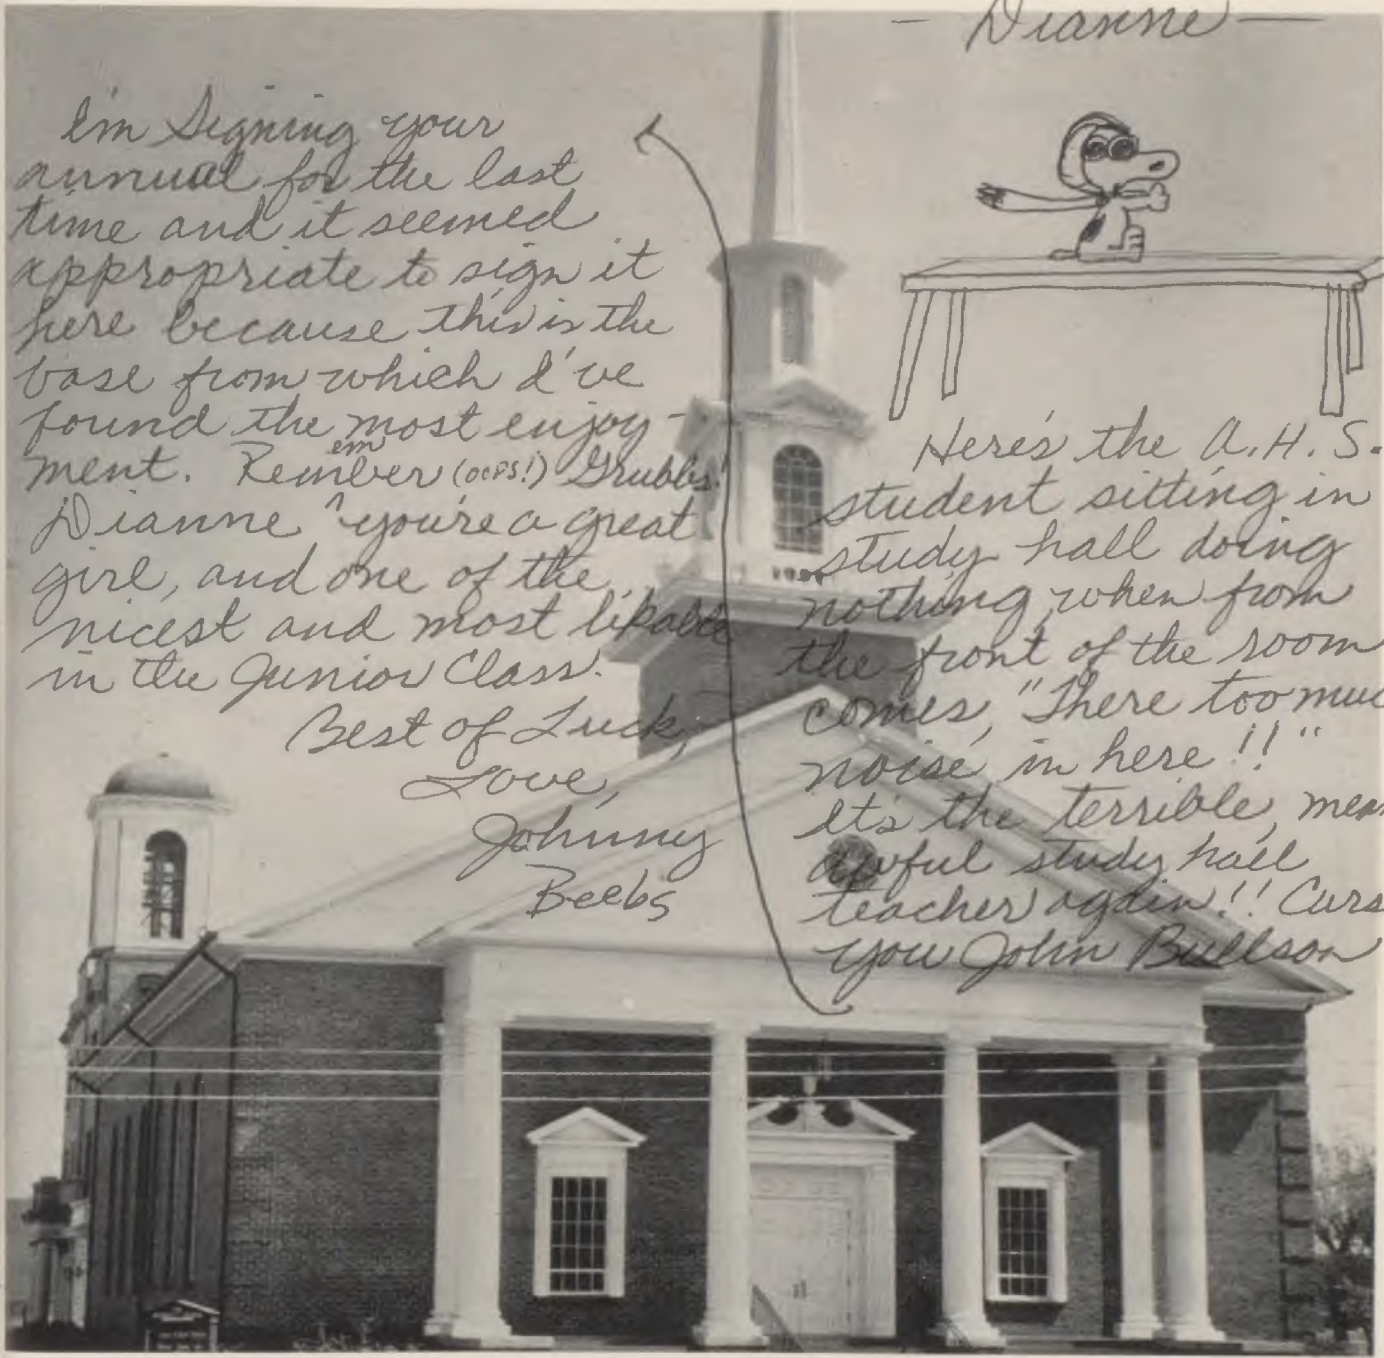 — Dianne —
I'm Signing your
annual for the last
time and it seemed
appropriate to sign it
here because this is the
base from which I've
found the most enjoy-
ment. Remember (OOPS!) Grubbs!
Dianne you're a great
girl, and one of the
nicest and most likable
in the Junior Class.
Best of Luck,
Love,
Johnny
Beebs
Here's the A.H.S.
student sitting in
study hall doing
nothing, when from
the front of the room
comes, "There too muc
noise in here!!"
It's the terrible, mean
awful study hall
teacher again!! Curs
you John Bullson